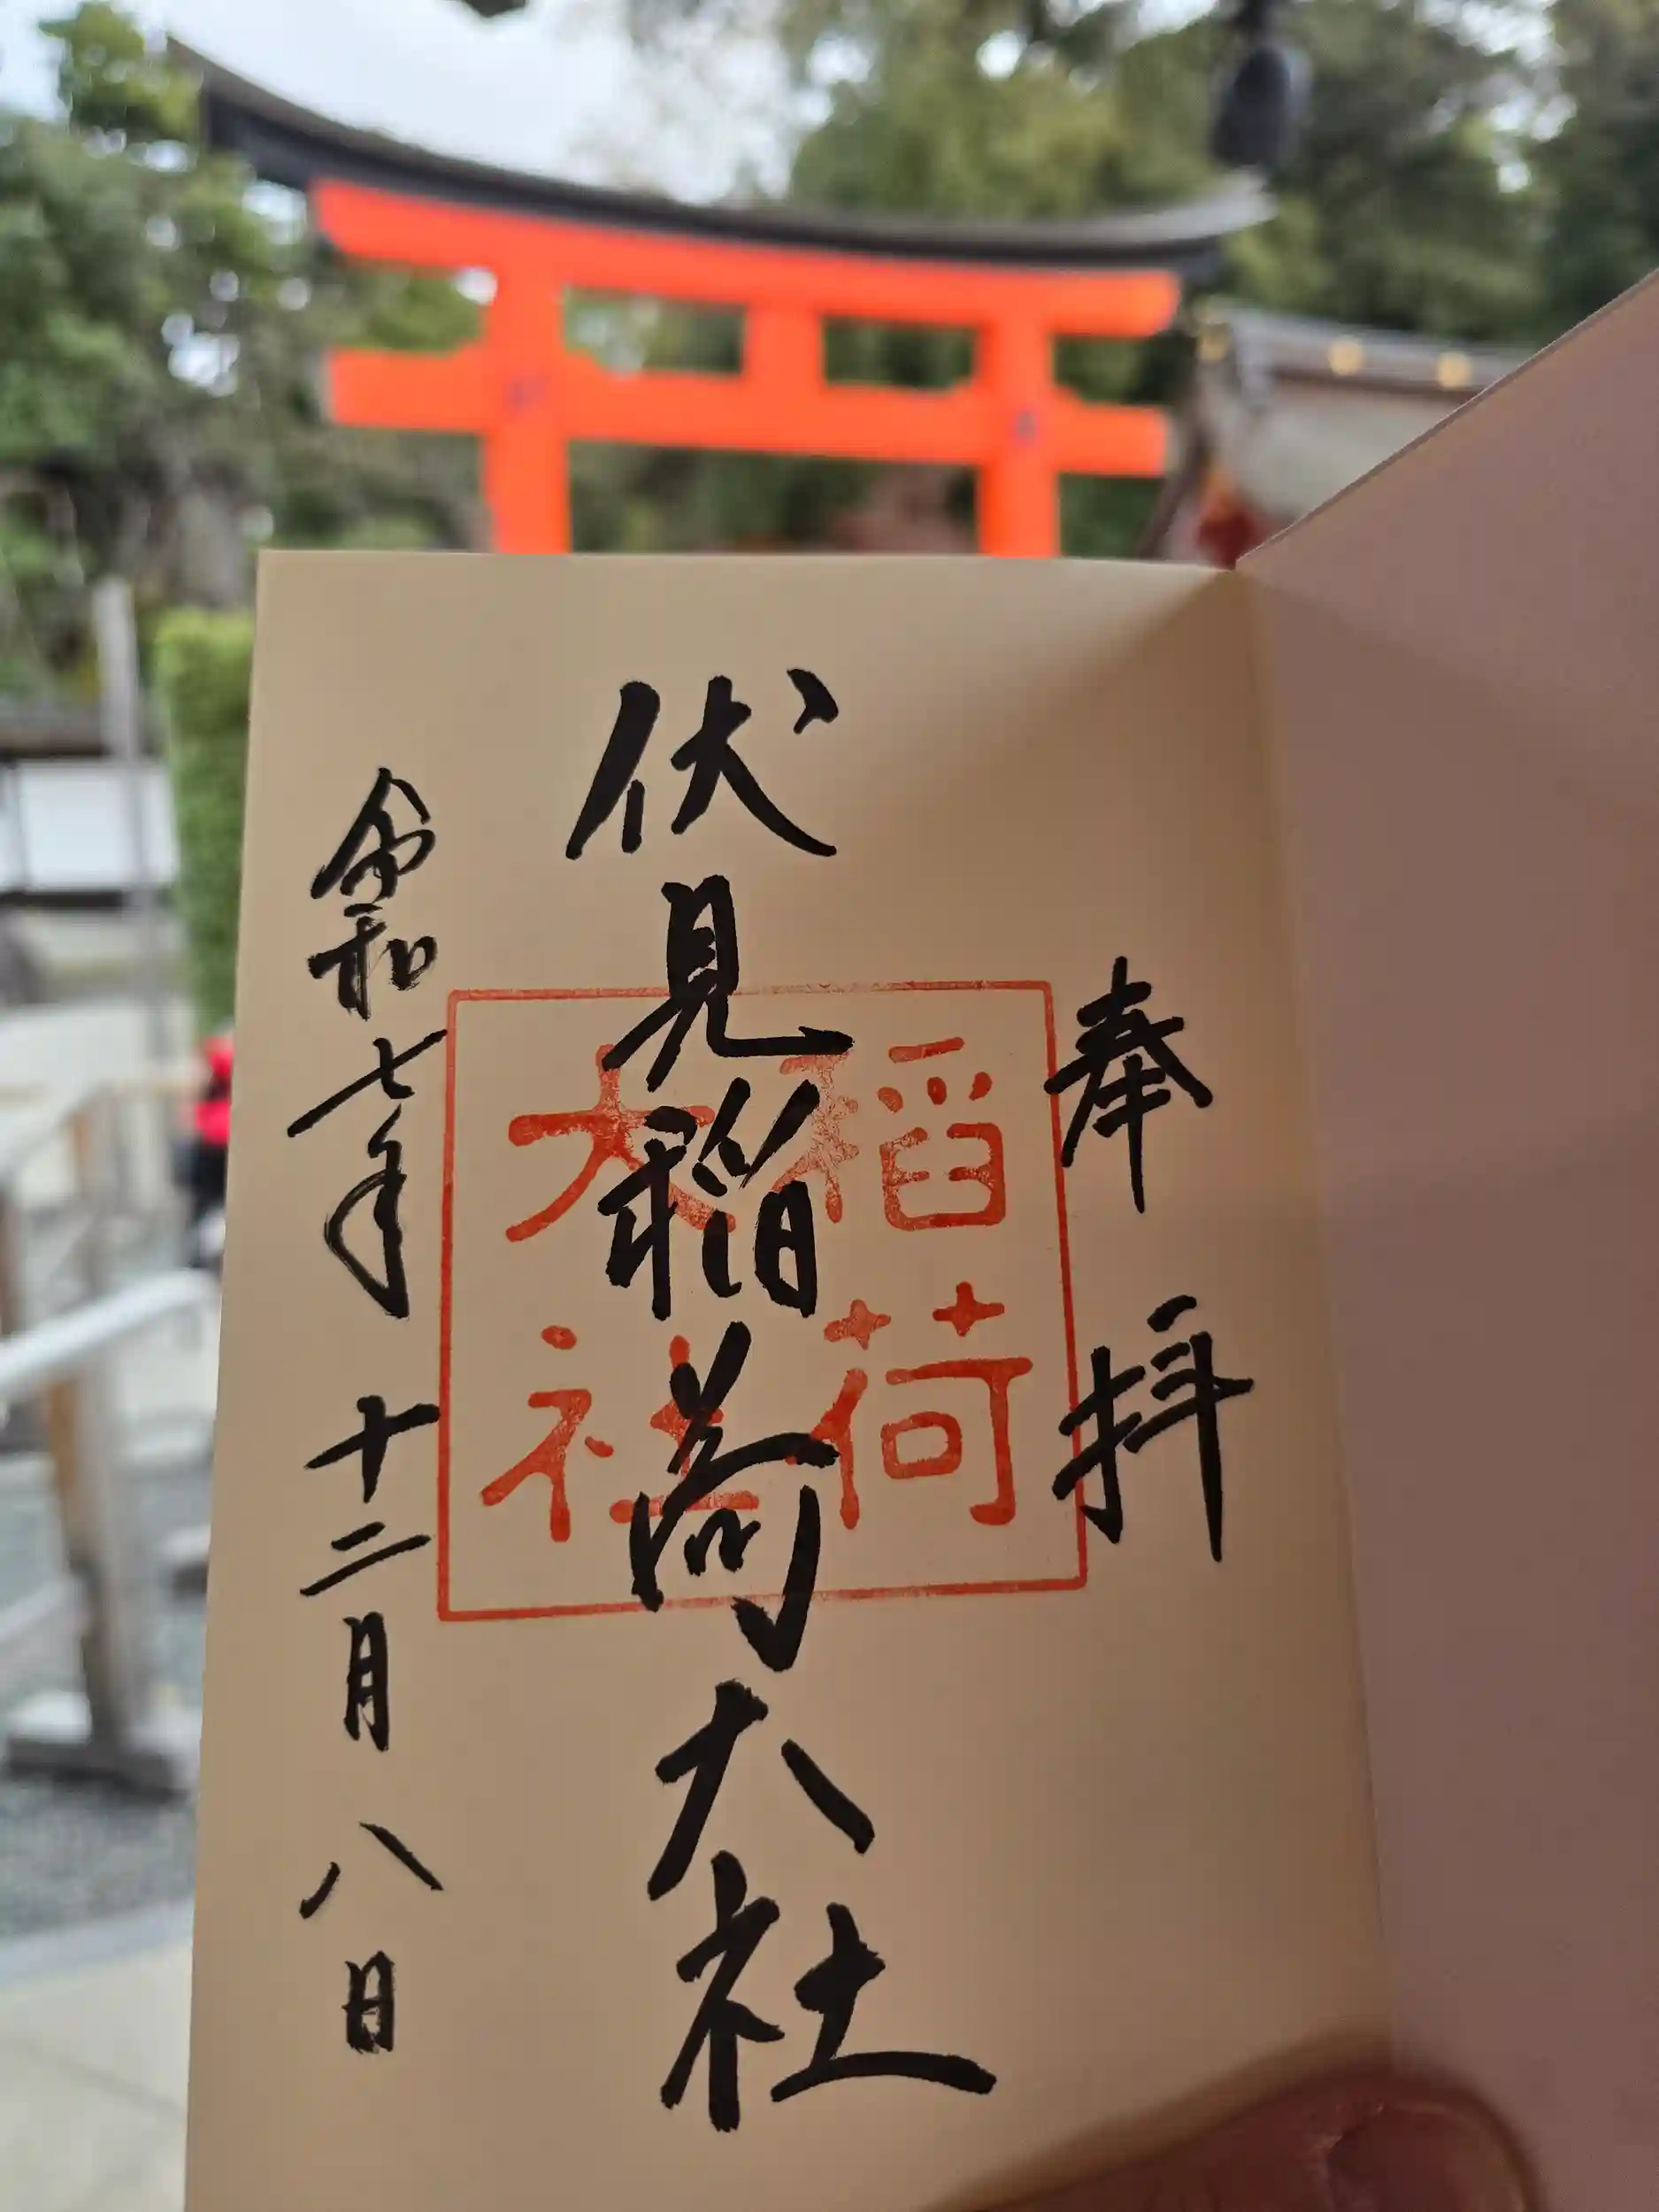 奉拝
伏見稲荷大社
稲荷
大社
令和七年十二月八日